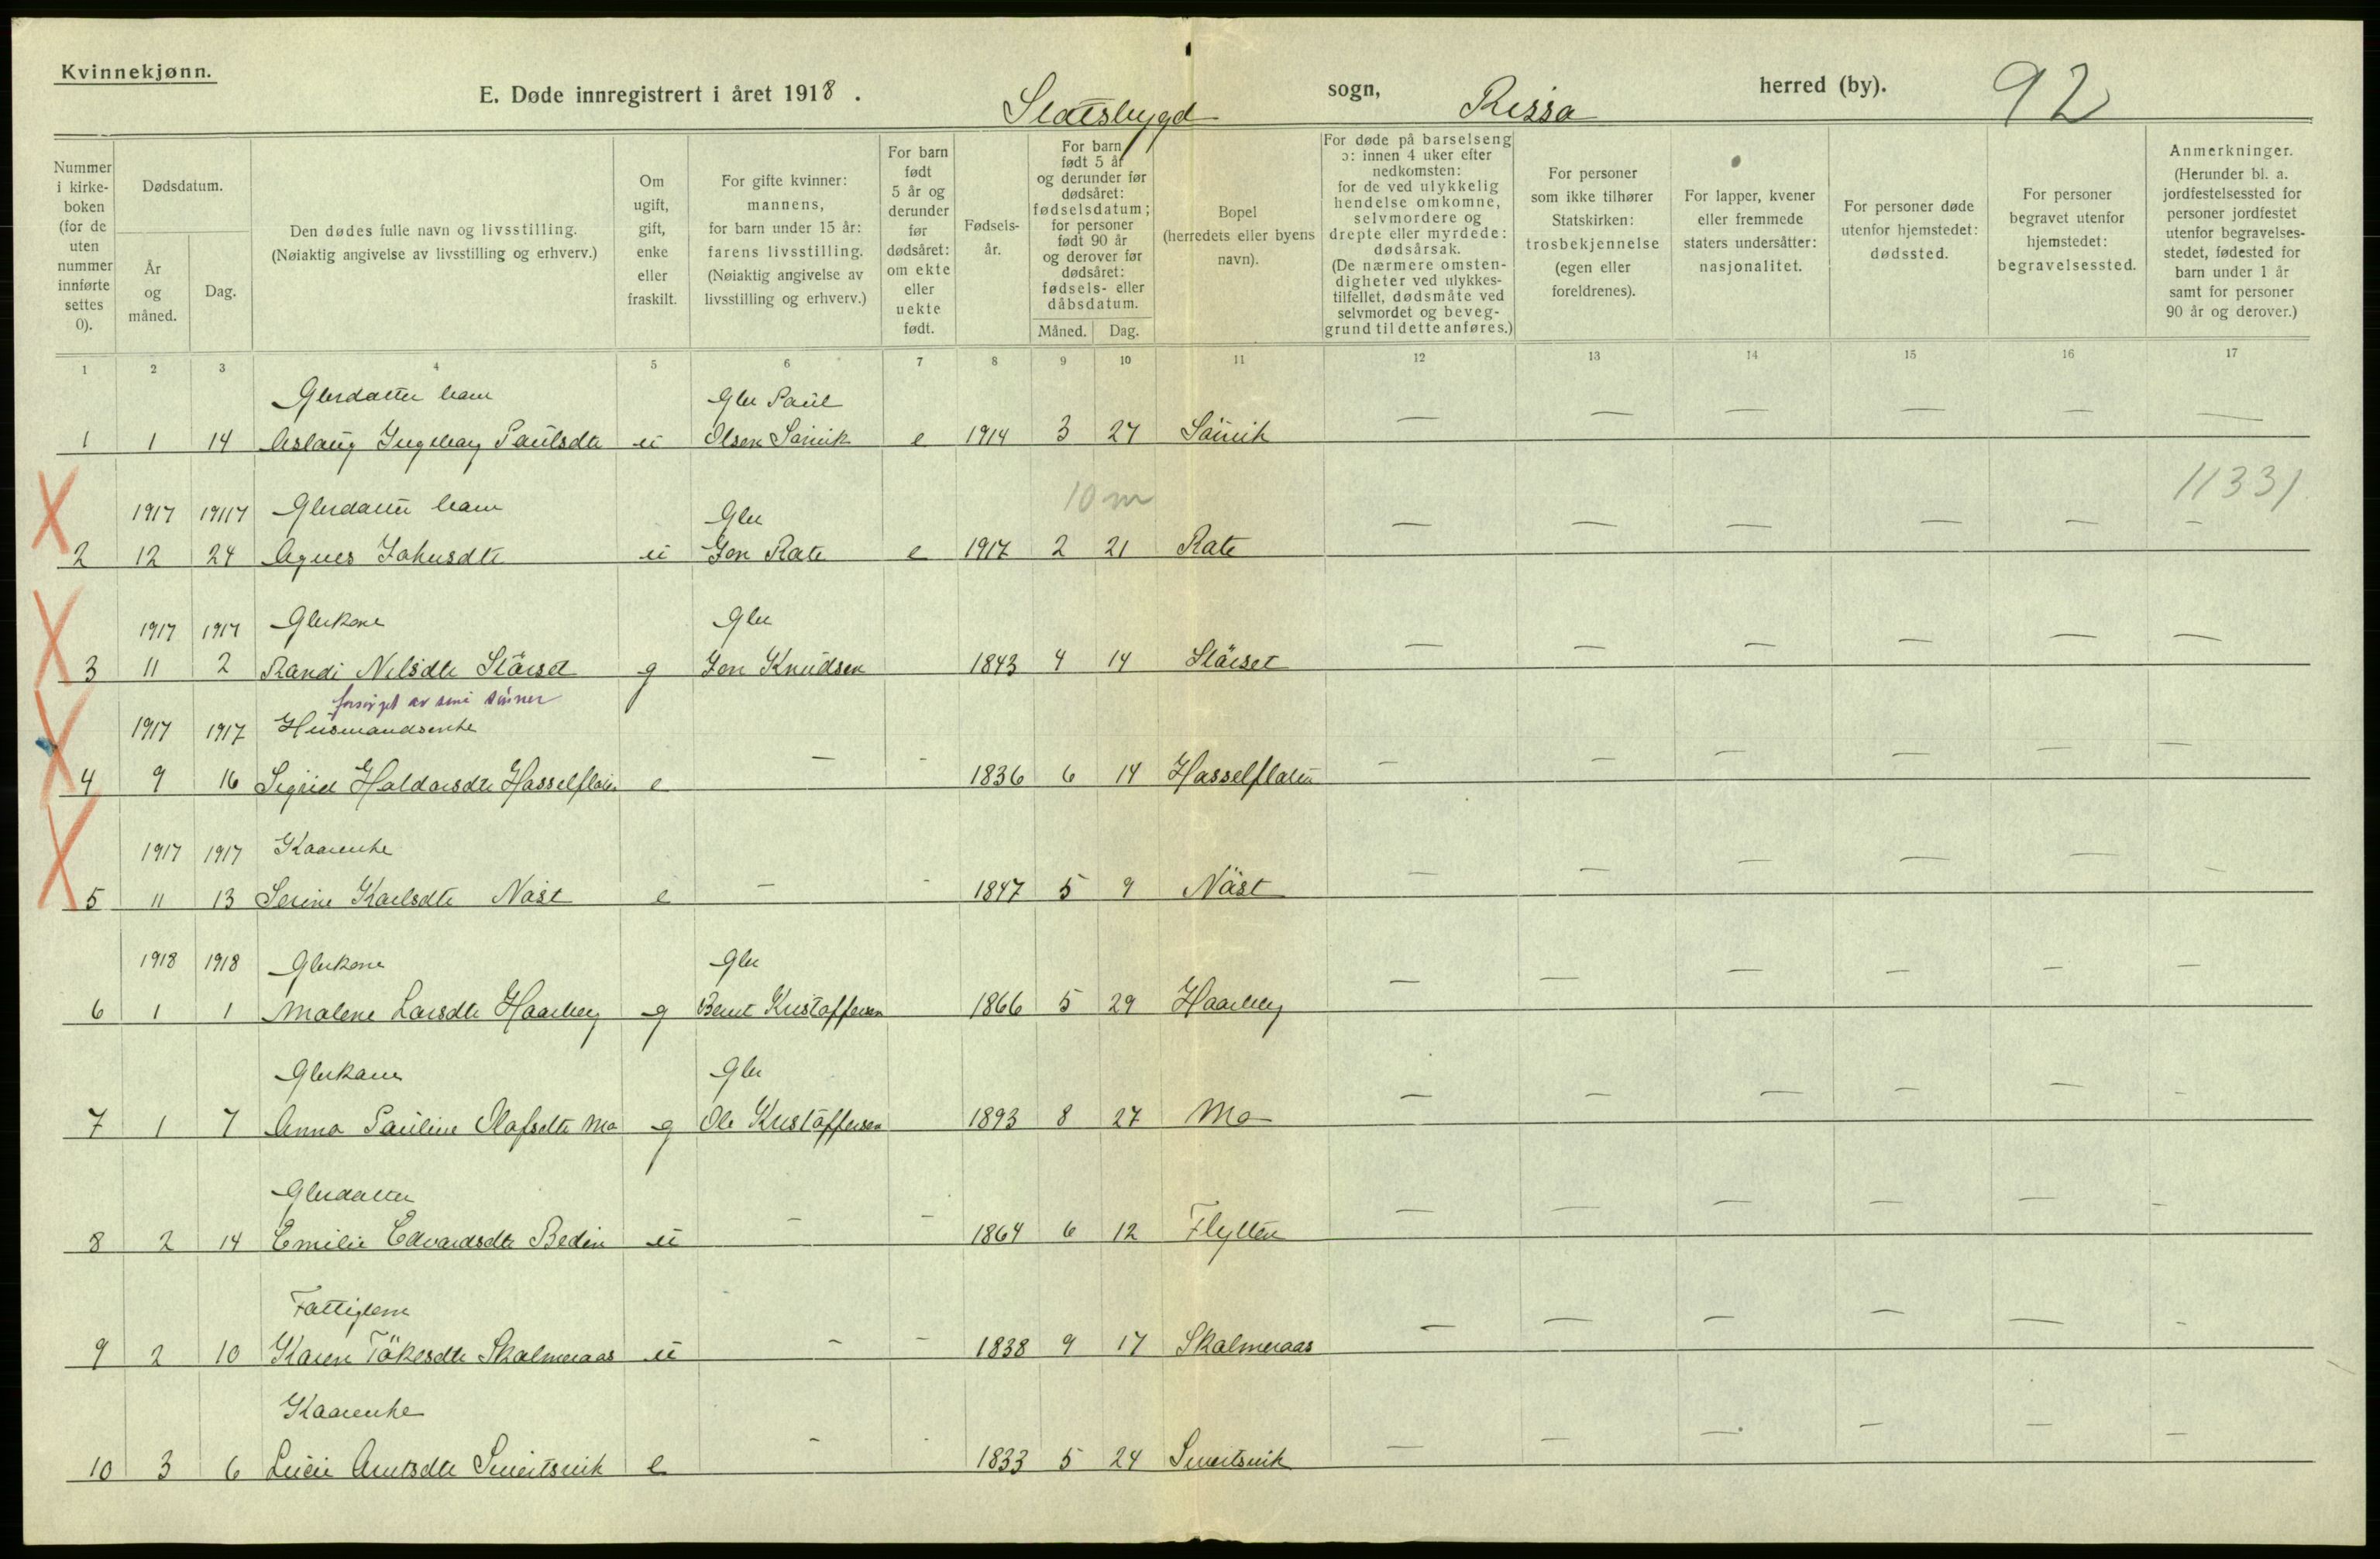 Kvinnekjønn.
E. Døde innregistrert i året 1918. Statsbygd sogn, Rissa herred (by). 92
Nummer i kirkeboken (for de uten nummer innførte settes 0).
Dødsdatum.
År og måned.
Dag.
Den dødes fulle navn og livsstilling.
(Nøiaktig angivelse av livsstilling og erhverv.)
Om ugift, gift, enke eller fraskilt.
For gifte kvinner: mannens, for barn under 15 år: farens livsstilling. (Nøiaktig angivelse av livsstilling og erhverv.)
For barn født 5 år og derunder før dødsåret: om ekte eller uekte født.
Fødsels-år.
For barn født 5 år og derunder før dødsåret: fødselsdatum; for personer født 90 år og derover før dødsåret: fødsels- eller dåbsdatum.
Måned.
Dag.
Bopel (herredets eller byens navn).
For døde på barselseng ɔ: innen 4 uker efter nedkomsten: for de ved ulykkelig hendelse omkomne, selvmordere og drepte eller myrdede: dødsårsak. (De nærmere omsten-digheter ved ulykkes-tilfellet, dødsmåte ved selvmordet og beveg-grund til dette anføres.)
For personer som ikke tilhører Statskirken: trosbekjennelse (egen eller foreldrenes).
For lapper, kvener eller fremmede staters undersåtter: nasjonalitet.
For personer døde utenfor hjemstedet: dødssted.
For personer begravet utenfor hjemstedet: begravelsessted.
Anmerkninger. (Herunder bl. a. jordfestelsessted for personer jordfestet utenfor begravelses-stedet, fødested for barn under 1 år samt for personer 90 år og derover.)
1 2 3 4 5 6 7 8 9 10 11 12 13 14 15 16 17
Gbrdatter barn Gbr Paul — — — — — —
1 1 14 Aslaug Ingeborg Paulsdtr u Olsen e 1914 3 27
1917 1917 Gbrdatter barn Gbr 10 m — — — — — — 11331
2 12 24 Agnes Johnsdtr u Jon Rate e 1917 2 21 Rate
1917 1917 Gbrkone Gbr — — — — — —
3 11 2 Randi Nilsdtr Störset g Jon Knudsen 1843 4 14 Störset
forsørget av sine sönner
1917 1917 Husmandsenke — - — — — — — —
4 9 16 Sigrid Haldorsdtr Hasselflaten e 1836 6 14 Hasselflaten
1917 1917 Kaarenke — - — — — — — —
5 11 13 Serine Karlsdtr Näst e 1847 5 9 Näst
1918 1918 Gbrkone Gbr — — — — — —
6 1 1 Malene Larsdtr Haarberg g Bernt Kristoffersen 1866 5 29 Haarberg
Gbrkone Gbr — — — — — -
7 1 7 Anna Pauline Olafsdtr Mo g Ole Kristoffersen 1893 8 27 Mo
Gbrdatter — — — — — — — -
8 2 14 Emilie Edvardsdtr Bedin u 1864 6 12 Flytten
Fattiglem — — — — — — — -
9 2 10 Karen Tökesdtr Skalmeraas u 1838 9 17 Skalmeraas
Kaarenke - - — — — — — —
10 3 6 Arntsdtr e 1833 5 24